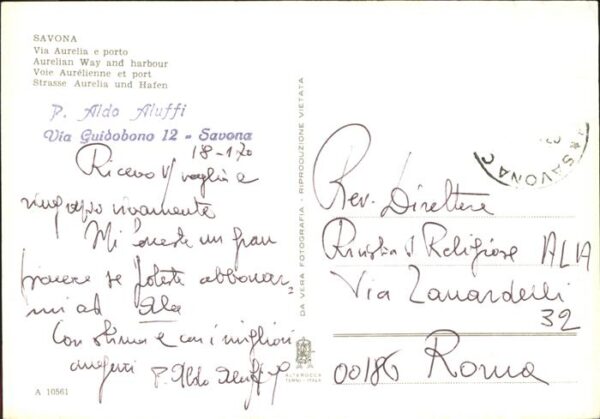 SAVONA
Via Aurelia e porto
Aurelian Way and harbour
Voie Aurélienne et port
Strasse Aurelia und Hafen
P. Aldo Aluffi
Via Guidobono 12 - Savona
18-1-70
Ricevo Vs/ vaglia e
ringrazio vivamente
Mi fareste un gran
piacere se poteste abbonar,
mi ad Ala
Con stima e con i migliori
auguri P. Aldo Aluffi
A 10561
DA VERA FOTOGRAFIA - RIPRODUZIONE VIETATA
ALTEROCCA
TERNI - ITALIA
SAVONA C
Rev. Direttore
Rivista Religiose ALA
Via Zanardelli
32
00186 Roma